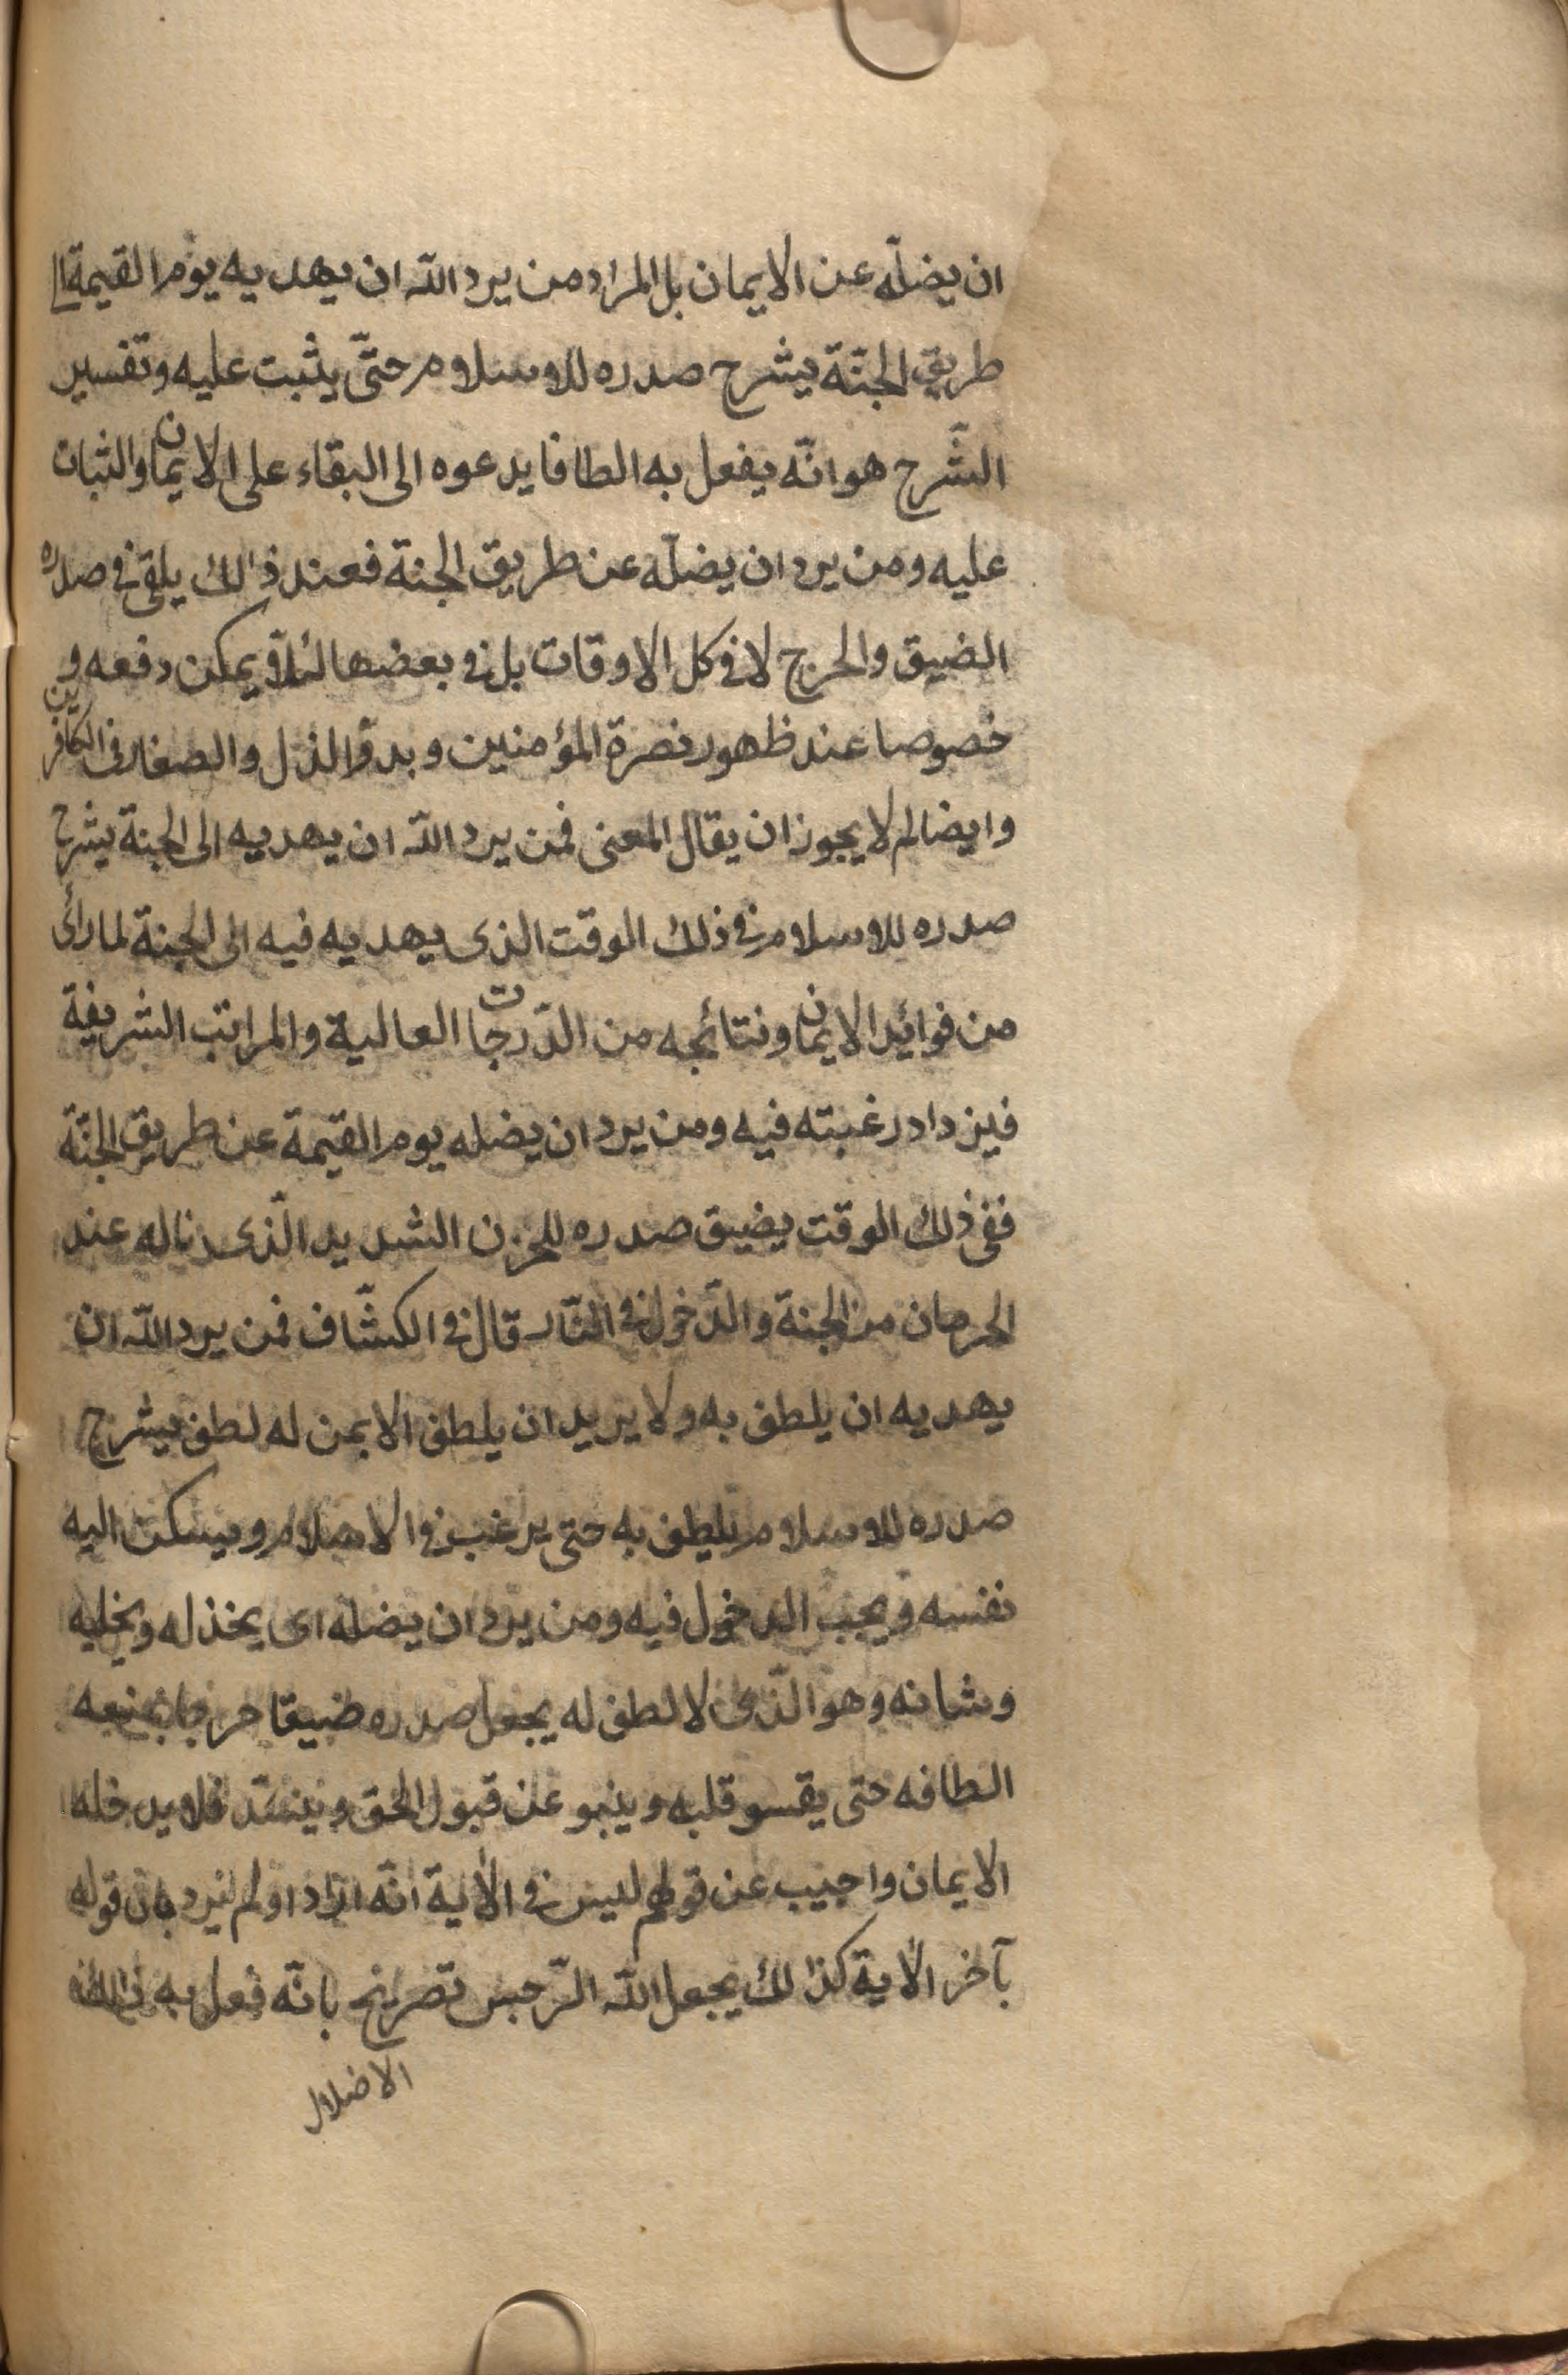 ان يضلّه عن الايمان بل المراد من يرد الله ان يهديه يوم القيمة الى
طريق الجنّة يشرح صدره للاسلام حتّى يثبت عليه وتفسير
الشّرح هو انّه يفعل به الطافا يدعوه الى البقاء على الايمان والثبات
عليه ومن يرد ان يضلّه عن طريق الجنة فعند ذالك يلقى فى صدره
الضيق والحرج لا فى كل الاوقات بل فى بعضها لئلا يمكن دفعه و
خصوصا عند ظهور نصرة المؤمنين وبدوّ الذل والصغار فى الكافرين
وايضا لم لا يجوز ان يقال المعنى فمن يرد الله ان يهديه الى الجنة يشرح
صدره للاسلام فى ذلك الوقت الذى يهديه فيه الى الجنة لما رأى
من فوائد الايمان ونتائجه من الدّرجات العالية والمراتب الشريفة
فيزداد رغبته فيه ومن يرد ان يضله يوم القيمة عن طريق الجنّة
ففى ذلك الوقت يضيق صدره للحزن الشديد الّذى ناله عند
الحرمان من الجنة والدّخول فى النّار قال فى الكشّاف فمن يرد الله ان
يهديه ان يلطف به ولا يريد ان يلطف الا بمن له لطف يشرح
صدره للاسلام يلطف به حتى يرغب فى الاسلام ويسكن اليه
نفسه ويحب الدخول فيه ومن يرد ان يضله اى يخذله ويخليه
وشانه وهو الّذى لا لطف له يجعل صدره ضيقا حرجا يمنعه
الطافه حتى يقسو قلبه وينبو عن قبول الحق وينسّد فلا يدخله
الايمان واجيب عن قولهم ليس فى الآية انّه اراد او لم يرد بان قوله
بآخر الآية كذالك يجعل الله الرّجس تصريح بانّه فعل به ذالك
الاضلال